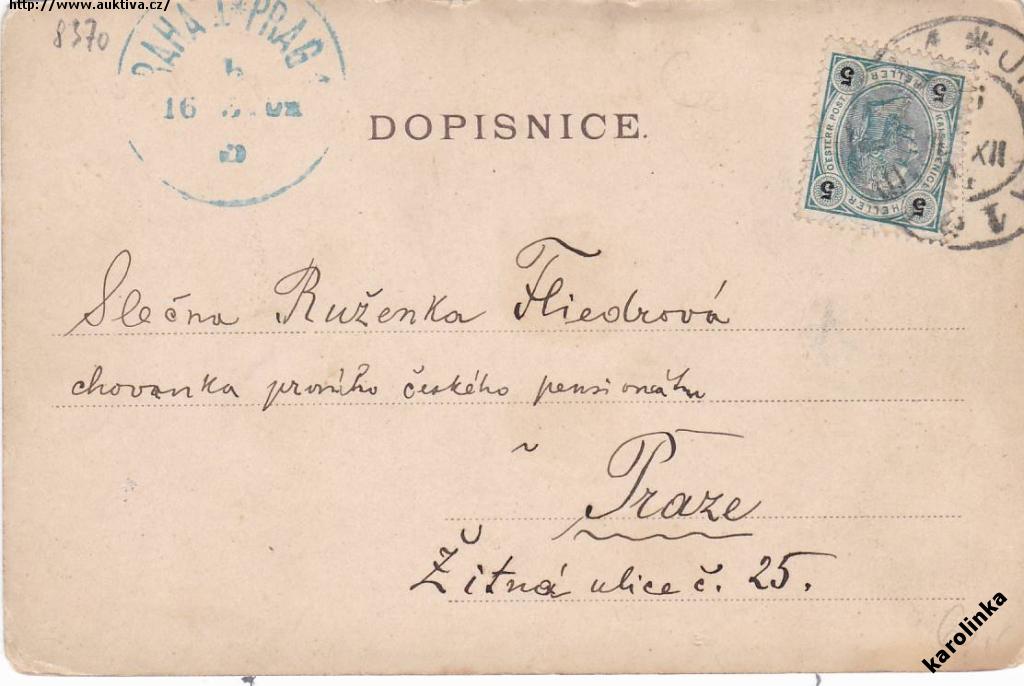 http://www.auktiva.cz/
8370
PRAHA 1 * PRAG 1
5
16
DOPISNICE.
5 5
HELLER
OESTERR. POST
5 5
HELLER
XII
Slečna Ruženka Fliedrová
chovanka prvního českého pensionátu
v
Praze
Žitná ulice č. 25.
karolinka